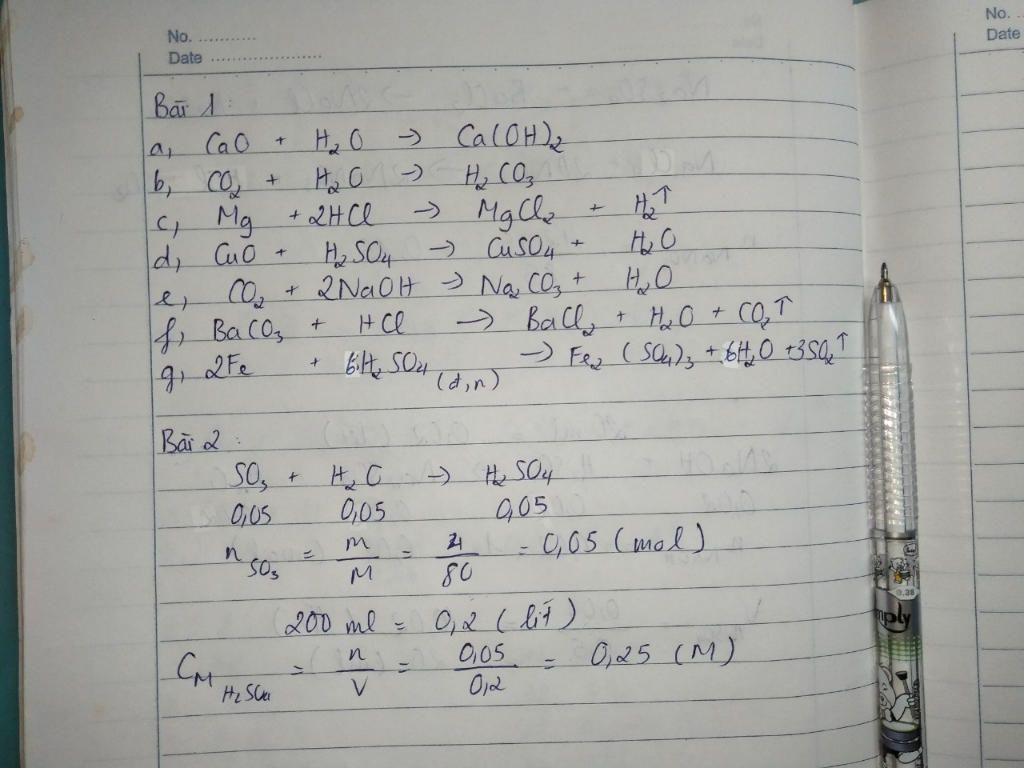 No. ...........
Date ......................
No. ..
Date
Bài 1:
a, CaO + H₂O → Ca(OH)₂
b, CO₂ + H₂O → H₂CO₃
c, Mg + 2HCl → MgCl₂ + H₂↑
d, CuO + H₂SO₄ → CuSO₄ + H₂O
e, CO₂ + 2NaOH → Na₂CO₃ + H₂O
f, BaCO₃ + HCl → BaCl₂ + H₂O + CO₂↑
g, 2Fe + 6H₂SO₄ (đ,n) → Fe₂(SO₄)₃ + 6H₂O + 3SO₂↑
Bài 2:
SO₃ + H₂O → H₂SO₄
0,05 0,05 0,05
n SO₃ = m/M = 4/80 = 0,05 (mol)
200 ml = 0,2 (lít)
C_M H₂SO₄ = n/V = 0,05/0,2 = 0,25 (M)
0.38
mply